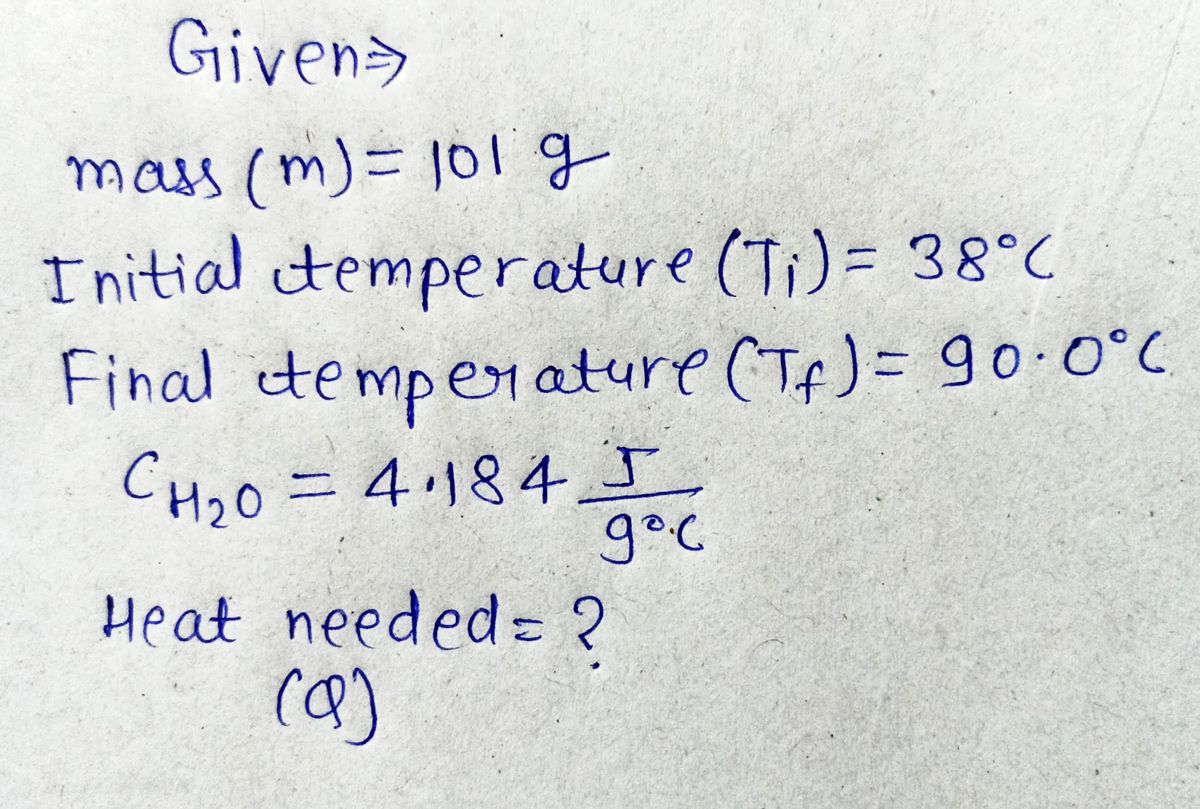 Given⇒
mass (m) = 101 g
Initial temperature (Ti) = 38°C
Final temperature (Tf) = 90.0°C
CH₂O = 4.184 J/g°C
Heat needed = ?
(Q)